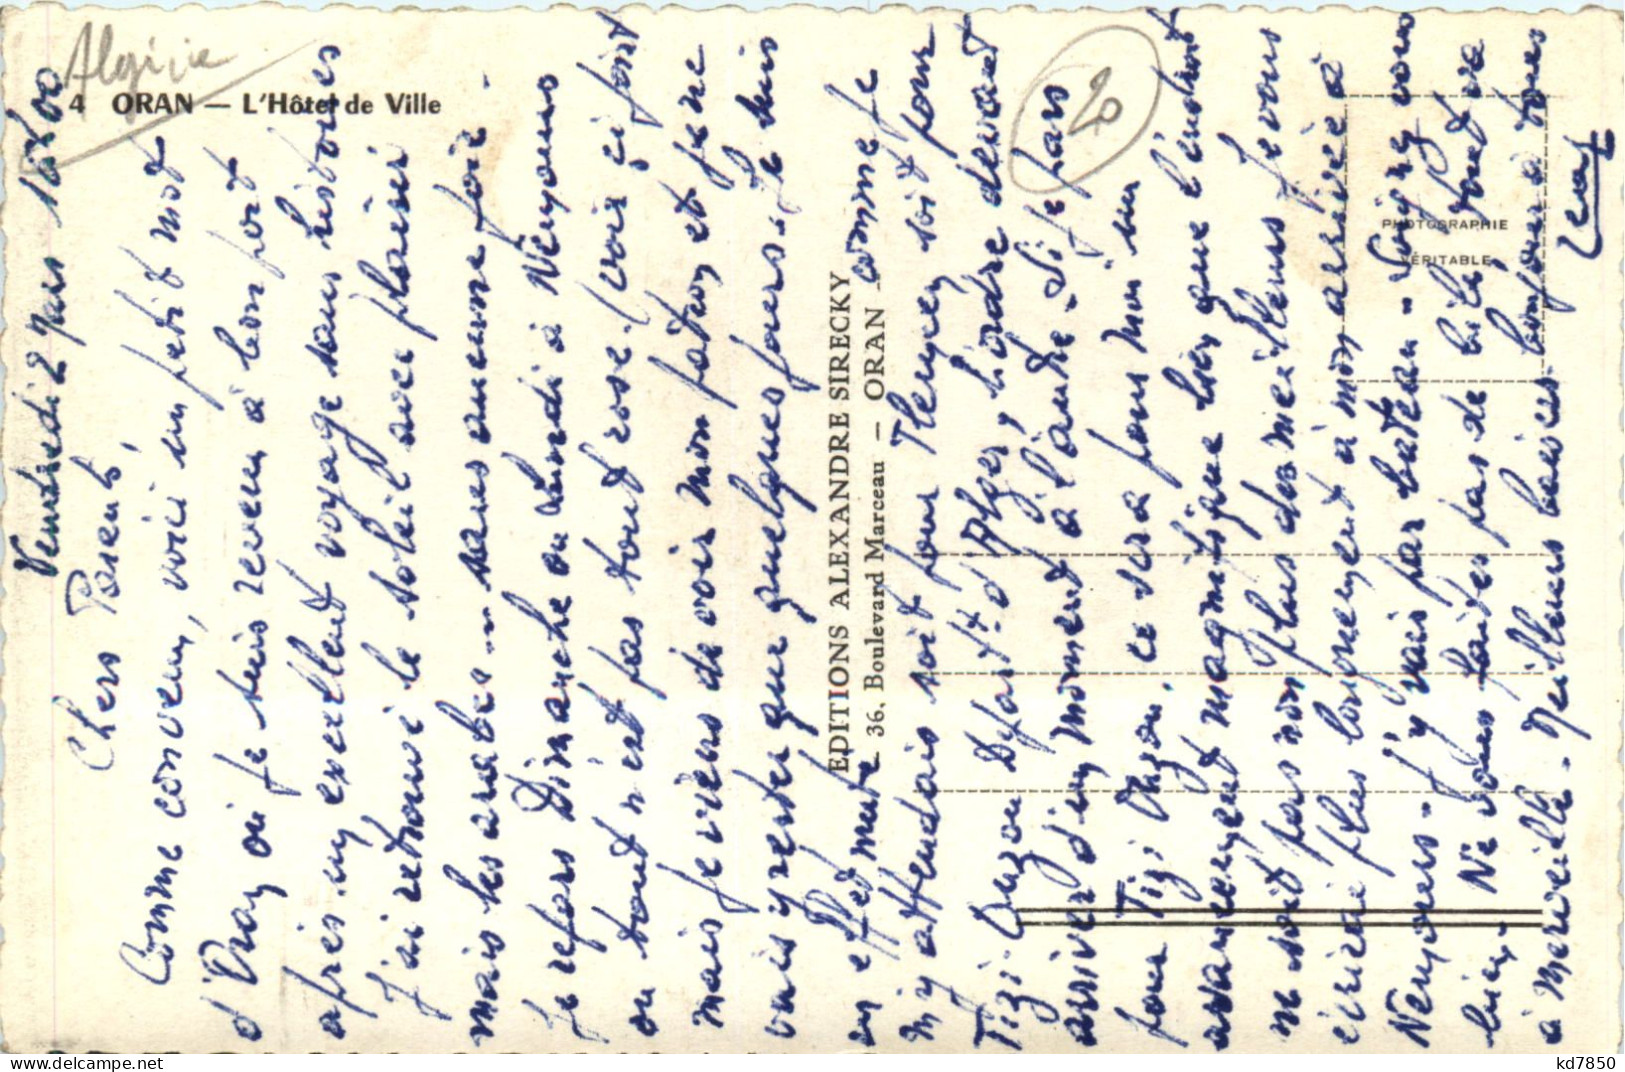 Algérie
4 ORAN — L'Hôtel de Ville
20
EDITIONS ALEXANDRE SIRECKY
36, Boulevard Marceau — ORAN
PHOTOGRAPHIE
VÉRITABLE
Vendredi 2 Mars
Chers Parents,
Comme convenu, voici un petit mot
d'Oran où je suis revenu à bon port
après un excellent voyage sans histoires
J'ai retrouvé le soleil avec plaisir
mais les arabes -- sans aucune joie -
Je repars Dimanche ou Lundi à Nemours
où tout n'est pas tout rose. (voir ci joint
mais je viens de voir mon patron et je ne
vais y rester que quelques jours. Je suis
en effet muté - comme je
m'y attendais soit pour Tlemcen soit pour
Tizi Ouzou Départt. d'Alger, l'ordre devant
arriver d'un moment à l'autre - Si je pars
pour Tizi Ouzou, ce sera pour moi un
avancement magnifique bien que l'endroit
ne soit pas non plus des meilleurs. Je vous
écrirai plus longuement à mon arrivée à
Nemours - J'y vais par bateau - Soyez sans
bien - Ne vous faites pas de bile, tout va
à merveille - Meilleurs baisers. bonjour à tous